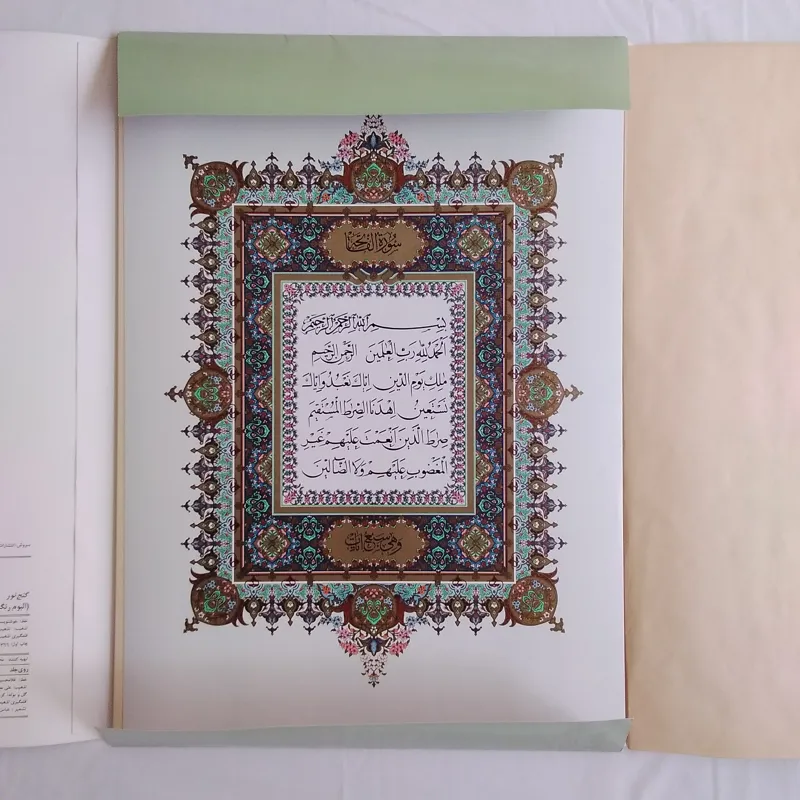 سورة الفاتحة
بسم الله الرحمن الرحيم
الحمد لله رب العلمين الرحمن الرحيم
ملك يوم الدين اياك نعبد واياك
نستعين اهدنا الصراط المستقيم
صراط الذين انعمت عليهم غير
المغضوب عليهم ولا الضالين
وهي سبع آيات
سروش انتشارات
گنج نور
روی جلد